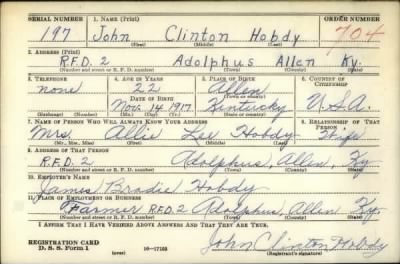 SERIAL NUMBER 1. NAME (Print) ORDER NUMBER
197 John Clinton Hobdy 704
(First) (Middle) (Last)
2. ADDRESS (Print)
R.F.D. 2 Adolphus Allen Ky.
(Number and street or R. F. D. number) (Town) (County) (State)
3. TELEPHONE 4. AGE IN YEARS 5. PLACE OF BIRTH 6. COUNTRY OF CITIZENSHIP
none 22 Allen
DATE OF BIRTH (Town or county)
Nov. 14 1917 Kentucky U.S.A.
(Exchange) (Number) (Mo.) (Day) (Yr.) (State or country)
7. NAME OF PERSON WHO WILL ALWAYS KNOW YOUR ADDRESS 8. RELATIONSHIP OF THAT PERSON
Mrs. Allie Lee Hobdy Wife
(Mr., Mrs., Miss) (First) (Middle) (Last)
9. ADDRESS OF THAT PERSON
R.F.D. 2 Adolphus, Allen, Ky
(Number and street or R. F. D. number) (Town) (County) (State)
10. EMPLOYER'S NAME
James Bradie Hobdy
11. PLACE OF EMPLOYMENT OR BUSINESS
Farmer R.F.D. 2 Adolphus, Allen Ky.
(Number and street or R. F. D. number) (Town) (County) (State)
I AFFIRM THAT I HAVE VERIFIED ABOVE ANSWERS AND THAT THEY ARE TRUE.
REGISTRATION CARD
D. S. S. Form 1 16—17105 John Clinton Hobdy
(over) (Registrant's signature)